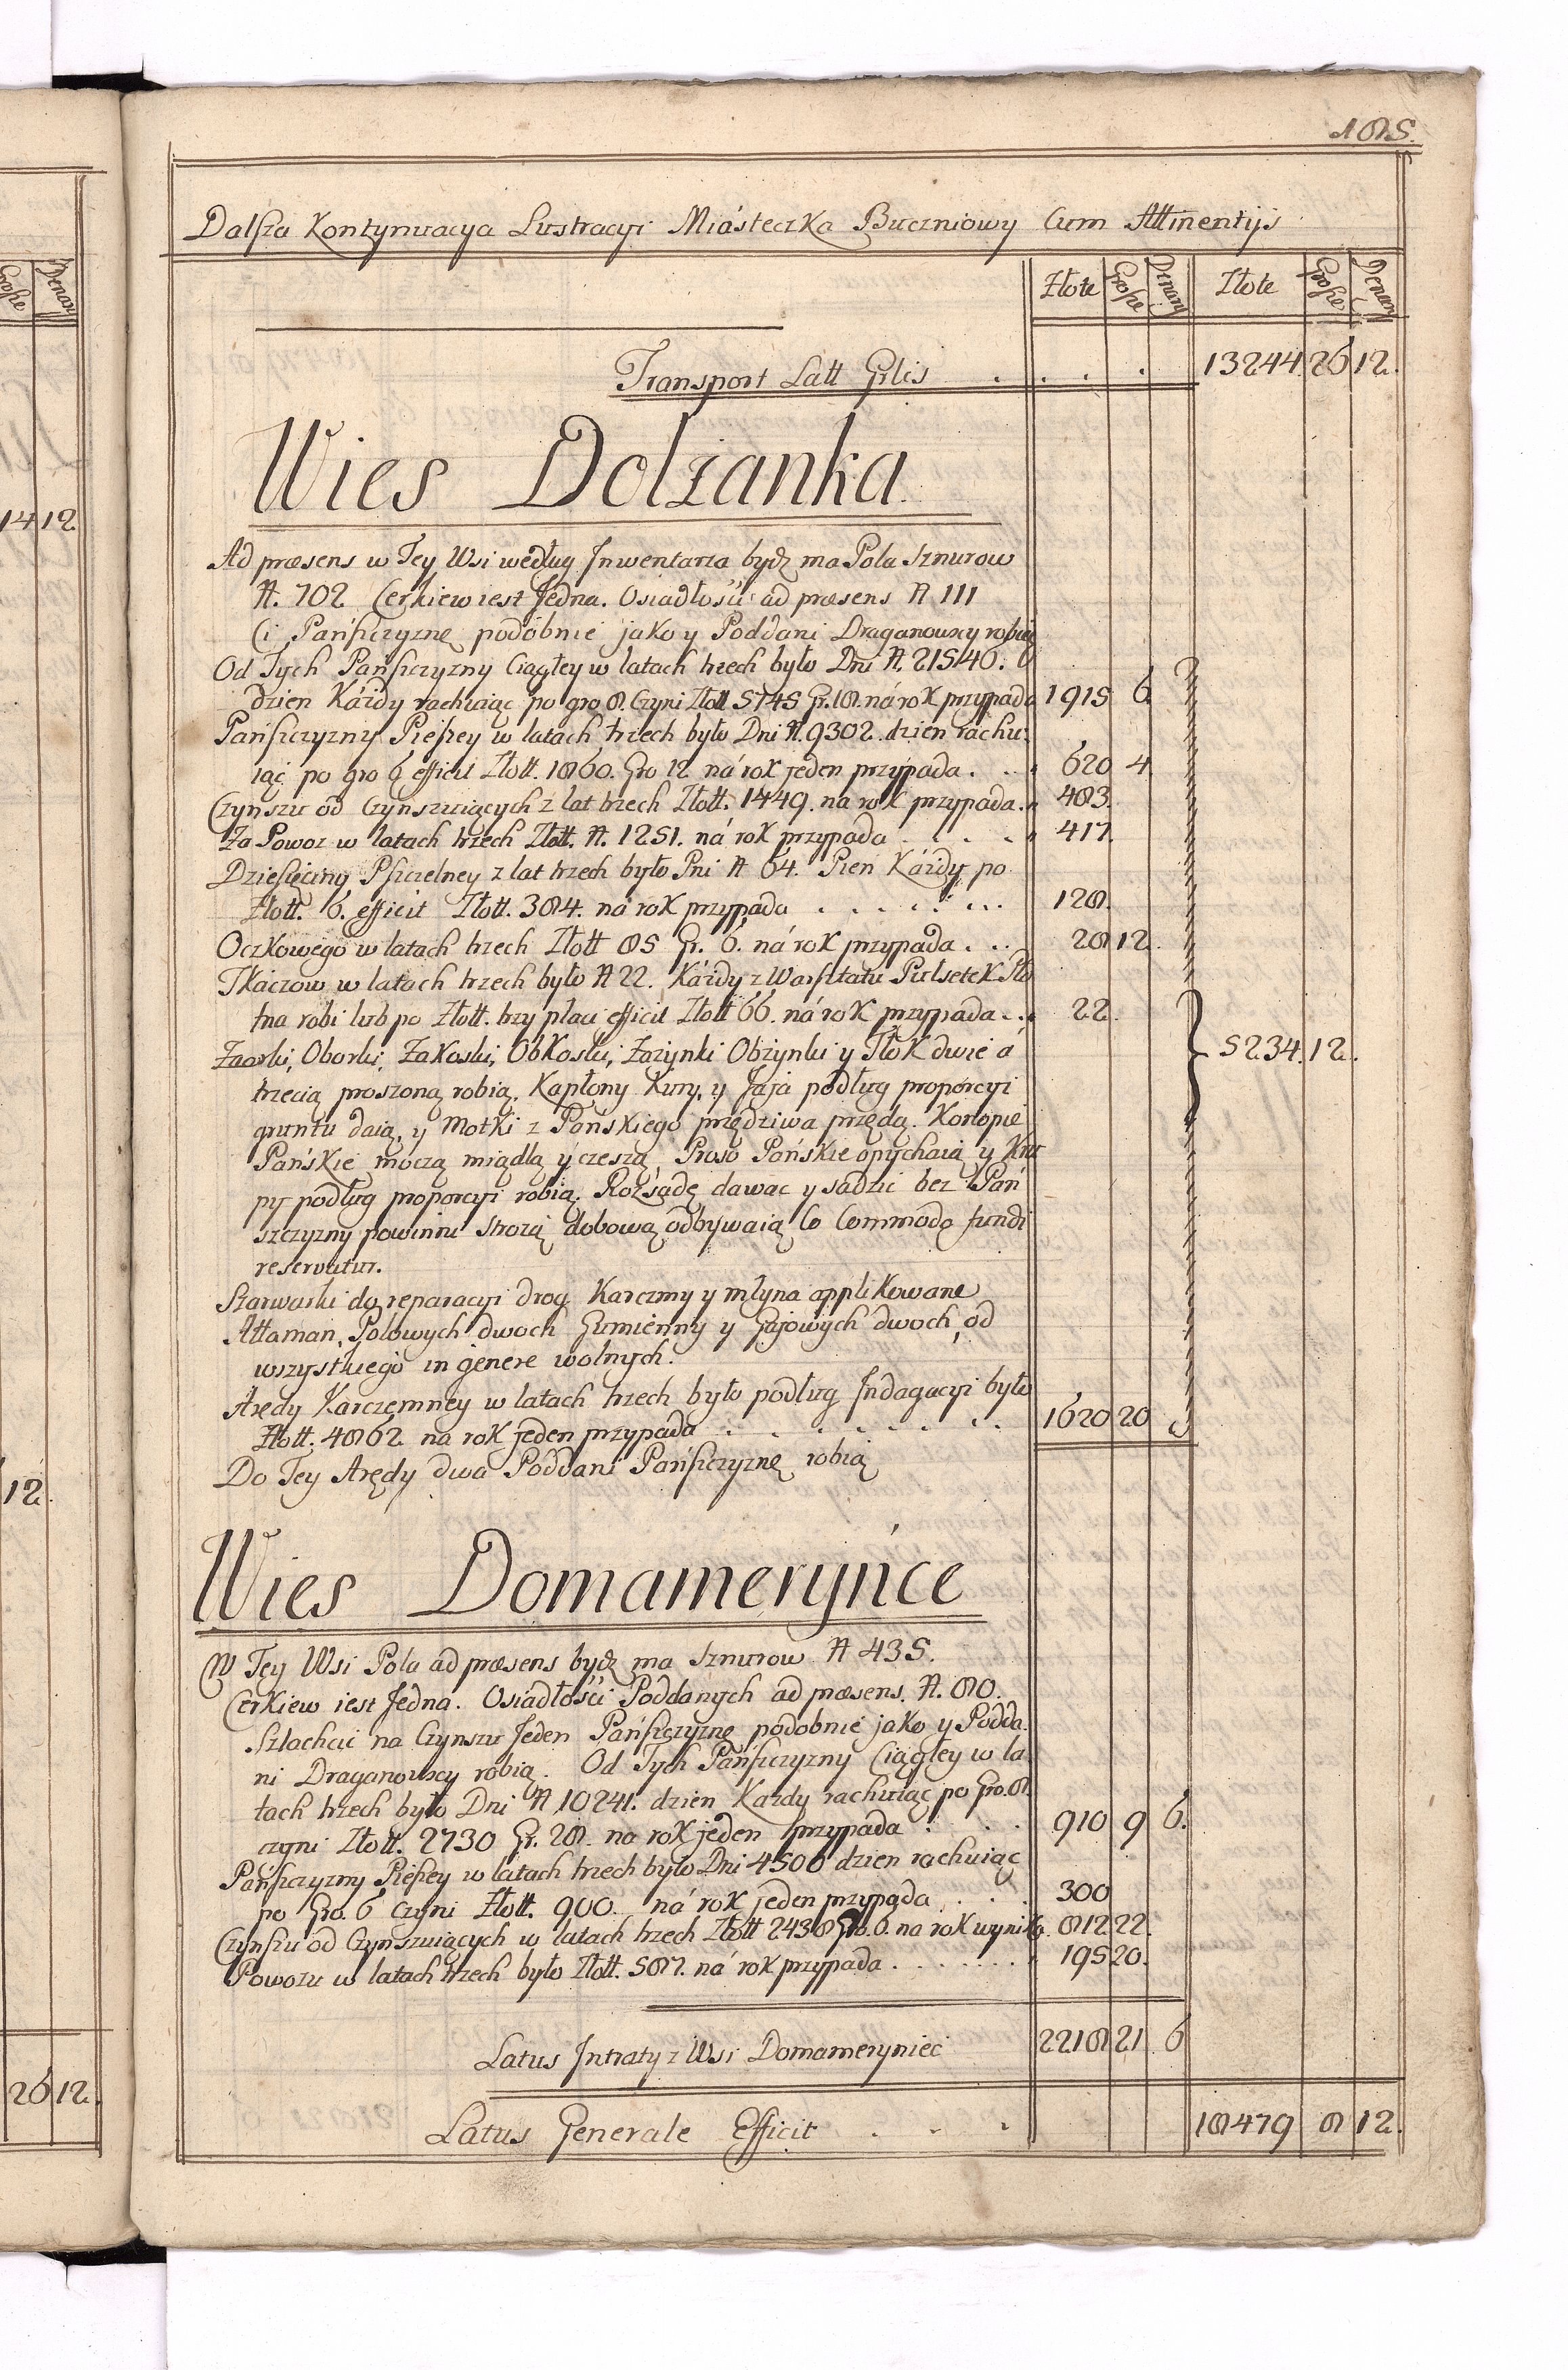 185.
Dalsza Kontynuacya Lustracyi Miásteczka Buczniowy Cum Attinentijs
Złote Grosze Denary Złote Grosze Denary
Transport Latt Grlis . . . . 13244. 26 12.
Wies Dolżanka
Ad præsens w Tey Wsi według Inwentarza bydź ma Pola Sznurow
N. 702 Cerkiew iest Jedna. Osiadłości ad præsens N 111
Ci Pańszczyznę podobnie jako y Poddani Draganowscy robią
Od Tych Pańszczyzny Ciągłey w latach trzech było Dni N. 21546.
dzien Káżdy rachuiąc po gro 8. Czyni Złott 5745 Gr. 18. ná rok przypada 1915 6.
Pańszczyzny Pieszey w latach trzech było Dni N. 9302. dzien rachu:
iąc po gro 6 efficit Złott. 1860. Gro 12 ná rok jeden przypada . . . 620 4.
Czynszu od Czynszuiących z lat trzech Złott. 1449. na rok przypada . 483.
Za Powoz w latach trzech Złott. N. 1251. ná rok przypada . . . 417.
Dziesięciny Pszczelney z lat trzech było Pni N 64. Pień Káżdy po
Złott. 6. efficit Złott. 384. ná rok przypada . . . . . . 128.
Oczkowego w latach trzech Złott 85 Gr. 6. ná rok przypada . . . 28 12.
Tkáczow w latach trzech było N 22. Káżdy z Warsztatu Pułsetek Płó
tna robi lub po Złott. trzy płaci efficit Złott 66. ná rok przypada . . . 22.
Zaorki, Oborki, Zakoski, Obkoski, Zażynki Obżynki y Tłok dwie á 5234. 12.
trzecią proszoną robią. Kapłony Kury, y Jaja podług proporcyi
gruntu daią, y Motki z Pańskiego przędziwa przędą. Konopie
Pańskie moczą miądlą y czeszą, Proso Pańskie opychaią y Kru
py podług proporcyi robią. Rozsadę dawac y sadzic bez Pań
szczyzny powinni Strożą dobową odbywaią Co Commodo fundi
reservatur.
Szarwarki do reparacyi drog Karczmy y młyna applikowane
Attaman, Polowych dwoch Gumienny y Gajowych dwoch, od
wszystkiego in genere wolnych.
Arędy Karczemney w latach trzech było podług Indagacyi było
Złott. 4862 na rok jeden przypada . . . . . . . . 1620 20
Do Tey Arędy dwa Poddani Pańszczyznę robią
Wies Domamerynce
W Tey Wsi Pola ad præsens bydź ma Sznurow N 435.
Cerkiew iest Jedna. Osiadłości Poddanych ad præsens. N. 80.
Szlachcic na Czynszu Jeden Pańszczyznę podobnie jako y Podda:
ni Draganowscy robią. Od Tych Pańszczyzny Ciągłey w la
tach trzech było Dni N 10241. dzien Kazdy rachuiąc po Gro. 8.
czyni Złott. 2730 Gr. 28. na rok jeden przypada . . . 910 9 6.
Pańszczyzny Pieszey w latach trzech było Dni 4500 dzien rachuiąc
po Gro. 6 Czyni Złott. 900. ná rok jeden przypada . . . 300
Czynszu od Czynszuiących w latach trzech Złott 2438 Gro. 6. na rok wynika 812 22.
Powozu w latach trzech było Złott. 587. ná rok przypada . . . . . . . 195 20.
Latus Intraty z Wsi Domameryniec 2218 21 6
Latus Generale Efficit . . . 18479 8 12.
14 12
12.
26 12.
Grosze Denary